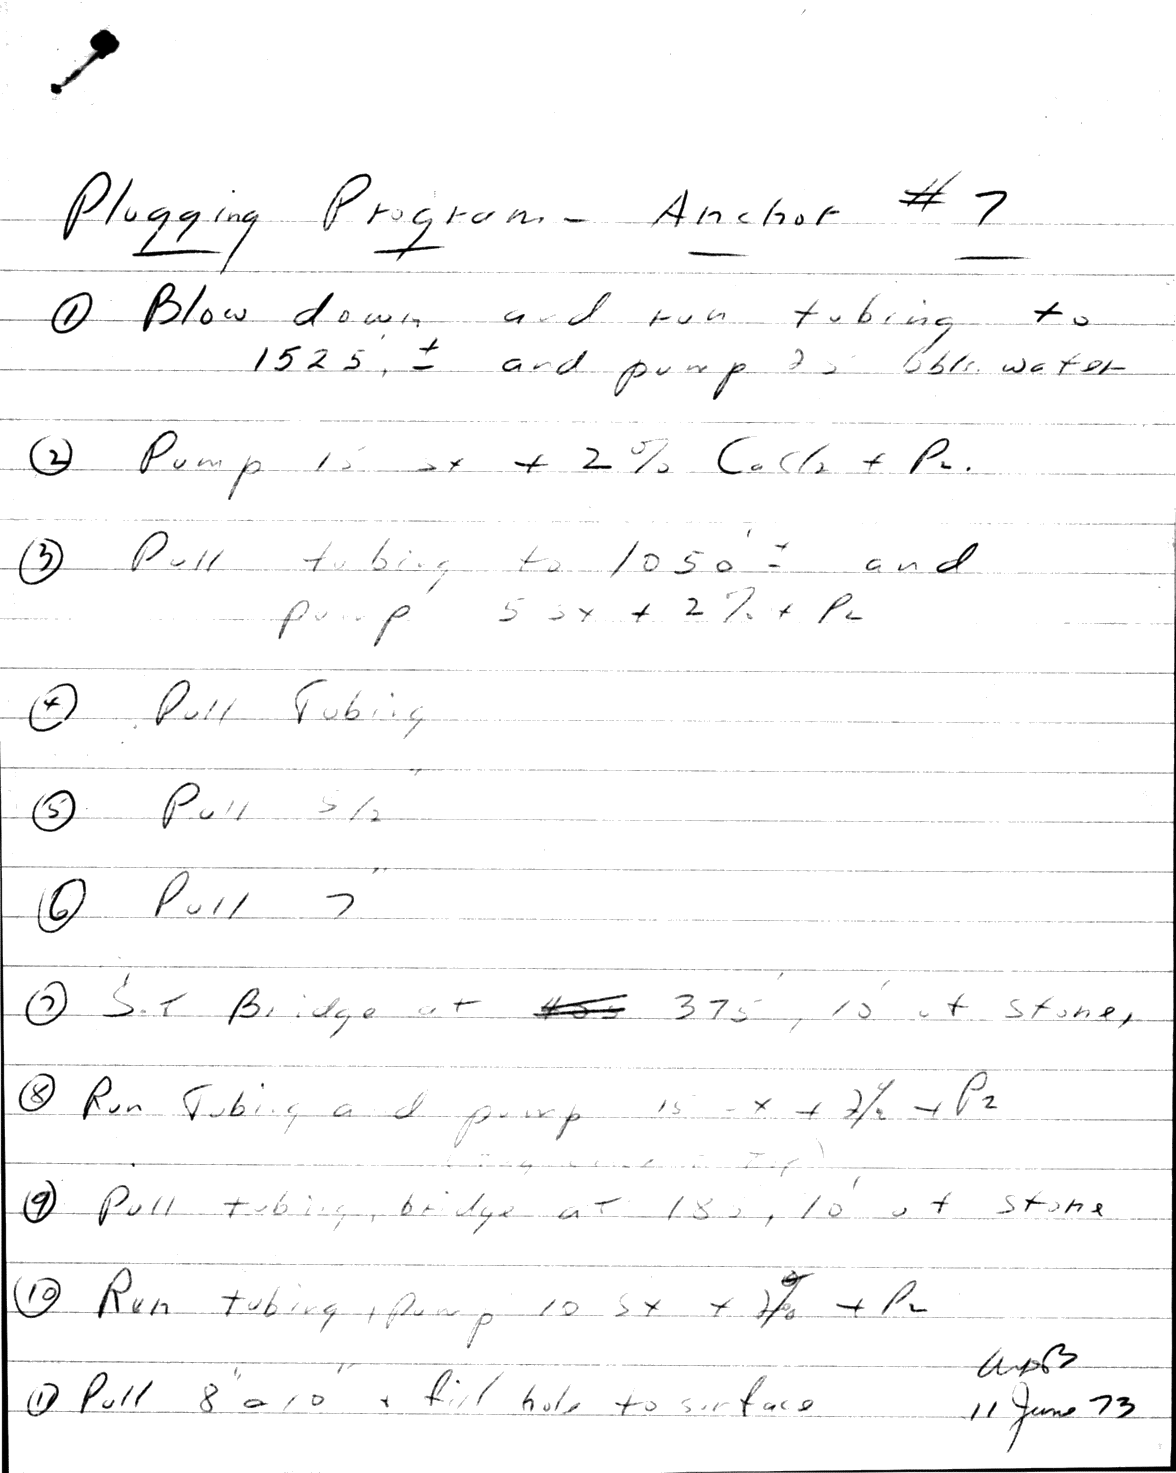 Plugging Program - Anchor # 7
① Blow down and run tubing to
1525' ± and pump 25 bbls. water
② Pump 15 sx + 2% CaCl2 + P2.
③ Pull tubing to 1050' ± and
pump 5 sx + 2% + P2
④ Pull Tubing
⑤ Pull 5 1/2"
⑥ Pull 7"
⑦ S.T Bridge at 375', 10' of stone,
⑧ Run Tubing and pump 15 sx + 2% + P2
⑨ Pull tubing, bridge at 180, 10' of stone
⑩ Run tubing, pump 10 sx + 2% + P2
⑪ Pull 8" 10" + fill hole to surface
11 June 73